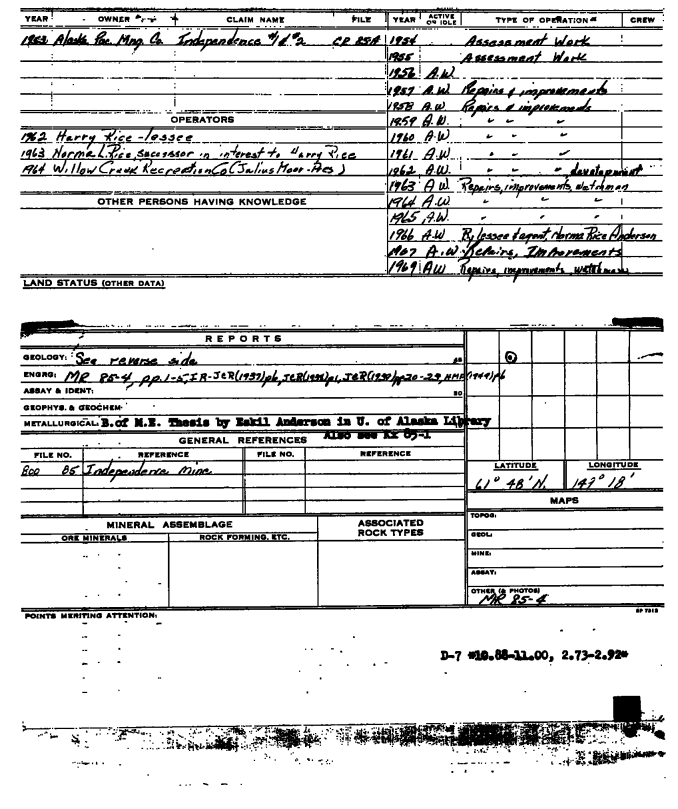 YEAR OWNER CLAIM NAME FILE YEAR ACTIVE OR IDLE TYPE OF OPERATION CREW
1953 Alaska Pac. Mng. Co. Independence #1 & #2 CR 85A 1954 Assessment Work
1955 Assessment Work
1956 A.W.
1957 A.W. Repairs & improvements
1958 A.W. Repairs & improvements
OPERATORS 1959 A.W. " " "
1962 Harry Rice - lessee 1960 A.W. " " "
1963 Norma L. Rice, successor in interest to Harry Rice 1961 A.W. " " "
1964 Willow Creek Recreation Co (Julius Moor - Pres) 1962 A.W. " " " development
1963 A.W. Repairs, improvements, watchman
OTHER PERSONS HAVING KNOWLEDGE 1964 A.W. " " "
1965 A.W. " " "
1966 A.W. By lessee & agent, Norma Rice Anderson
1967 A.W. Repairs, Improvements
1969 A.W. Repairs, improvements, watchman
LAND STATUS (OTHER DATA)
REPORTS
GEOLOGY: See reverse side
ENGRG: MR 85-4, pp.1-5, IR-JCR(1937)p6, JCR(1938)p1, JCR(1938)pp20-29, HMF(1949)p6
ASSAY & IDENT:
GEOPHYS. & GEOCHEM.
METALLURGICAL: B. of M.E. Thesis by Eskil Anderson in U. of Alaska Library
Also see KX 85-1
GENERAL REFERENCES
FILE NO. REFERENCE FILE NO. REFERENCE
800 85 Independence Mine
LATITUDE LONGITUDE
61° 48' N. 149° 18'
MAPS
MINERAL ASSEMBLAGE ASSOCIATED ROCK TYPES
ORE MINERALS ROCK FORMING, ETC.
TOPOG:
GEOL:
MINE:
ASSAY:
OTHER (& PHOTOS)
MR 85-4
POINTS MERITING ATTENTION:
SP 7313
D-7 *10.88-11.00, 2.73-2.92*